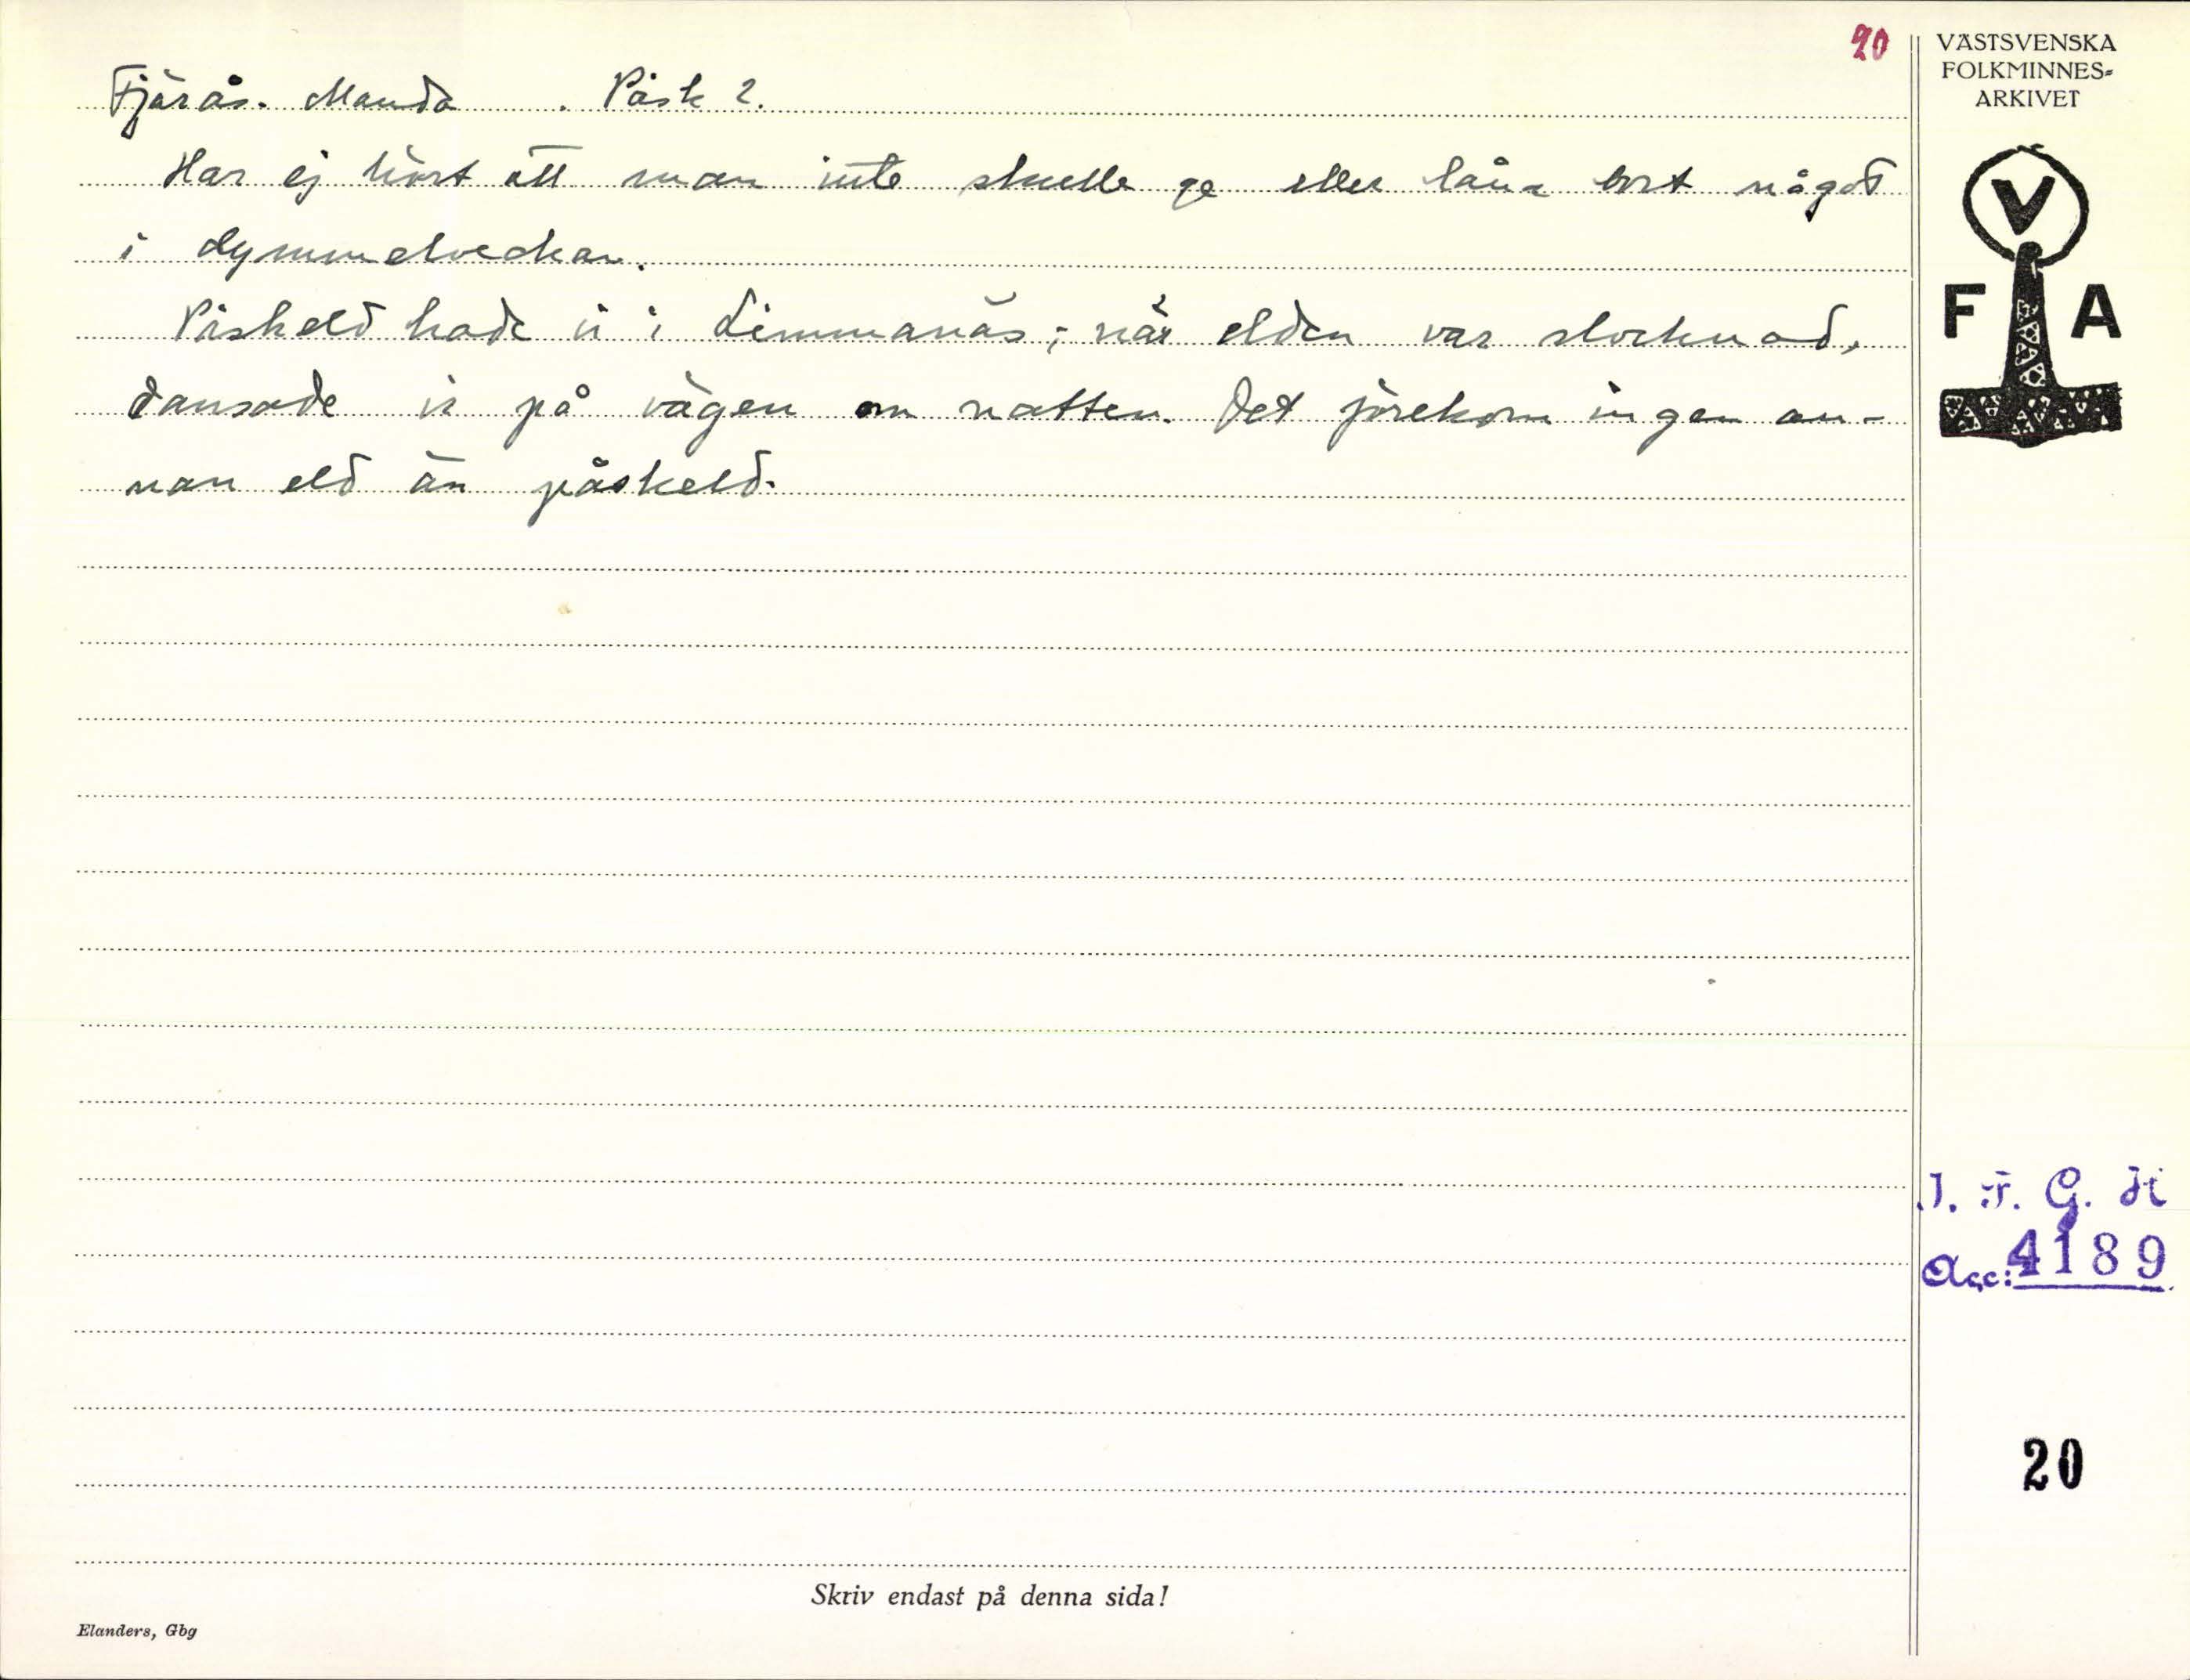 20
Fjärås. Manda . Påsk 2.
Har ej hört att man inte skulle ge eller låna bort något
i dymmelveckan.
Påskeld hade vi i Limmanäs; när elden var slocknad,
dansade vi på vägen om natten. Det förekom ingen an-
nan eld än påskeld.
VÄSTSVENSKA
FOLKMINNES-
ARKIVET
V
F A
I. F. G. H
Acc: 4189
20
Skriv endast på denna sida!
Elanders, Gbg